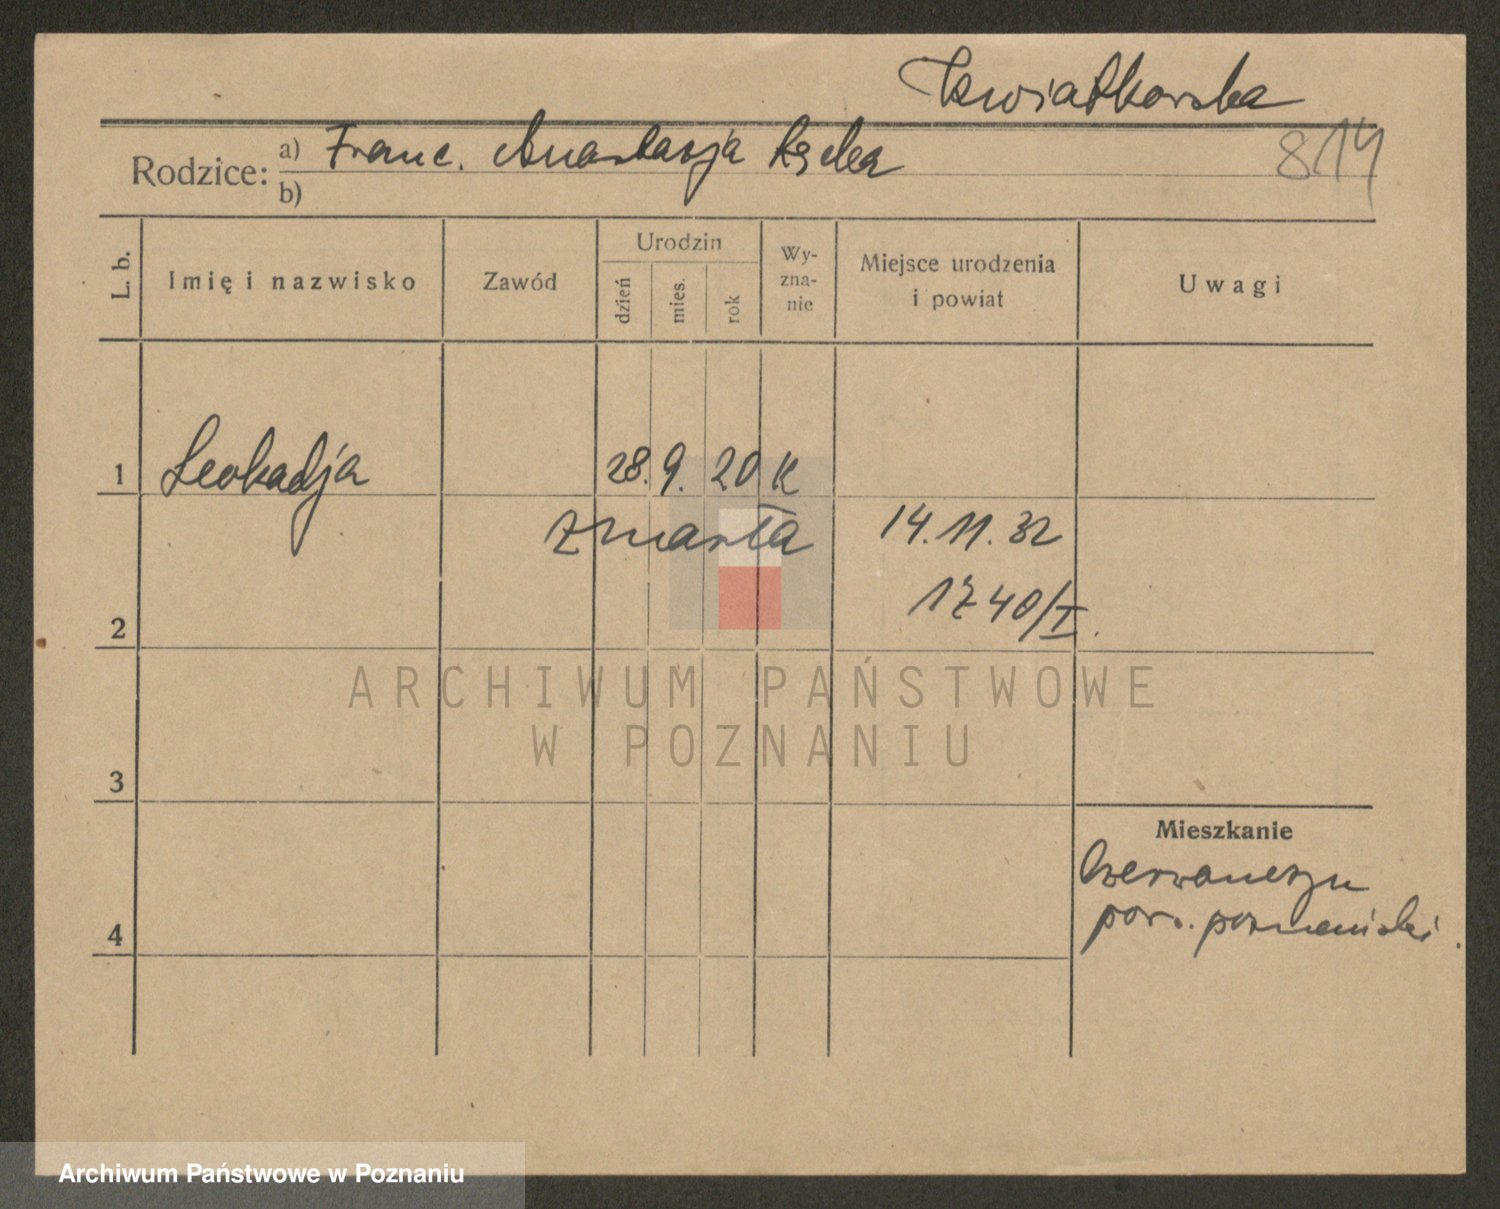 Kwiatkowska
814
Rodzice: a) Franc. Anastazja
b)
L. b.
Imię i nazwisko
Zawód
Urodzin
dzień
mies.
rok
Wy-
zna-
nie
Miejsce urodzenia
i powiat
Uwagi
1 Leokadja 28. 9. 20 K
zmarła 14. 11. 32
1740/I.
2
ARCHIWUM PAŃSTWOWE
W POZNANIU
3
Mieszkanie
pow. poznański.
4
Archiwum Państwowe w Poznaniu